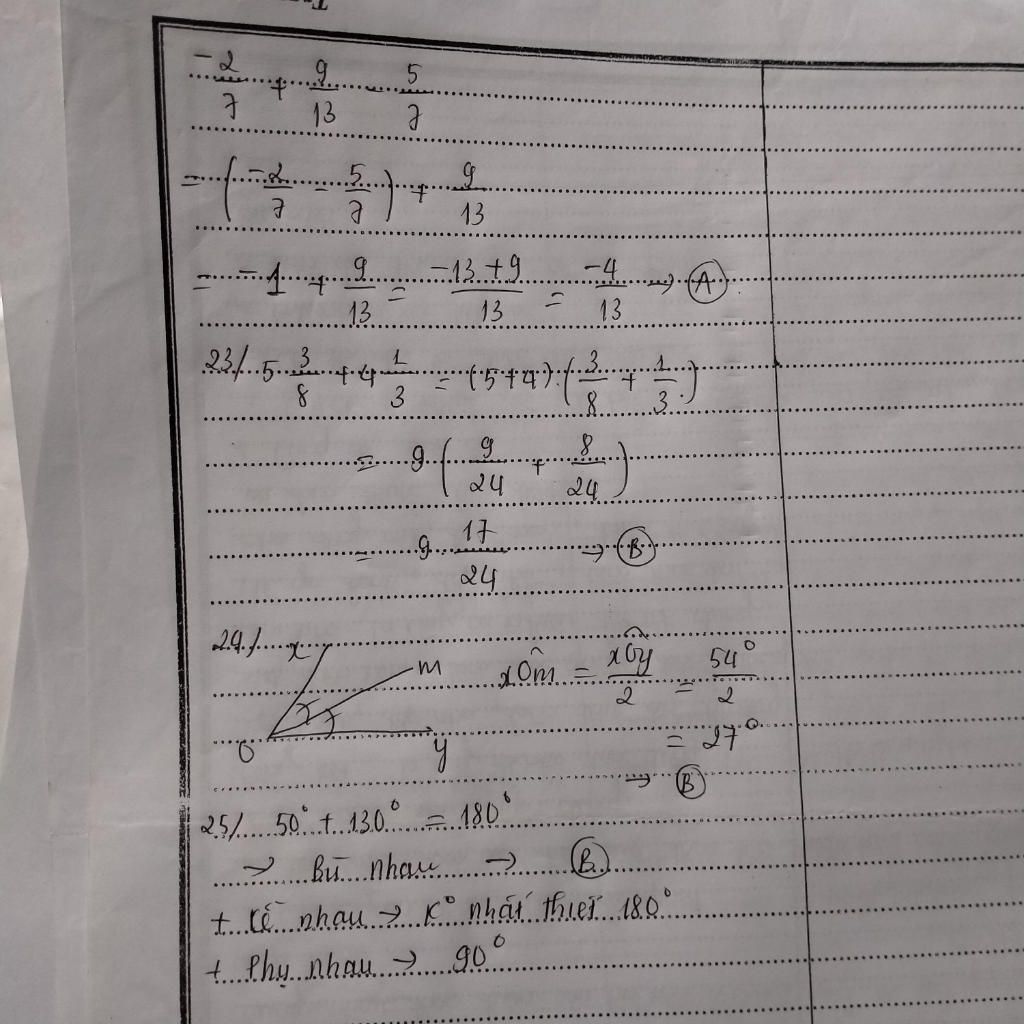 -2/7 + 9/13 - 5/7
= (-2/7 - 5/7) + 9/13
= -1 + 9/13 = -13+9/13 = -4/13 → A
23/ 5 3/8 + 4 1/3 = (5+4).(3/8 + 1/3)
= 9 (9/24 + 8/24)
= 9 17/24 → B
24/ x m O y xÔm = xÔy/2 = 54°/2
= 27°
→ B
25/ 50° + 130° = 180°
→ Bù nhau → B
+ Kề nhau → K° nhất thiết 180°
+ Phụ nhau → 90°